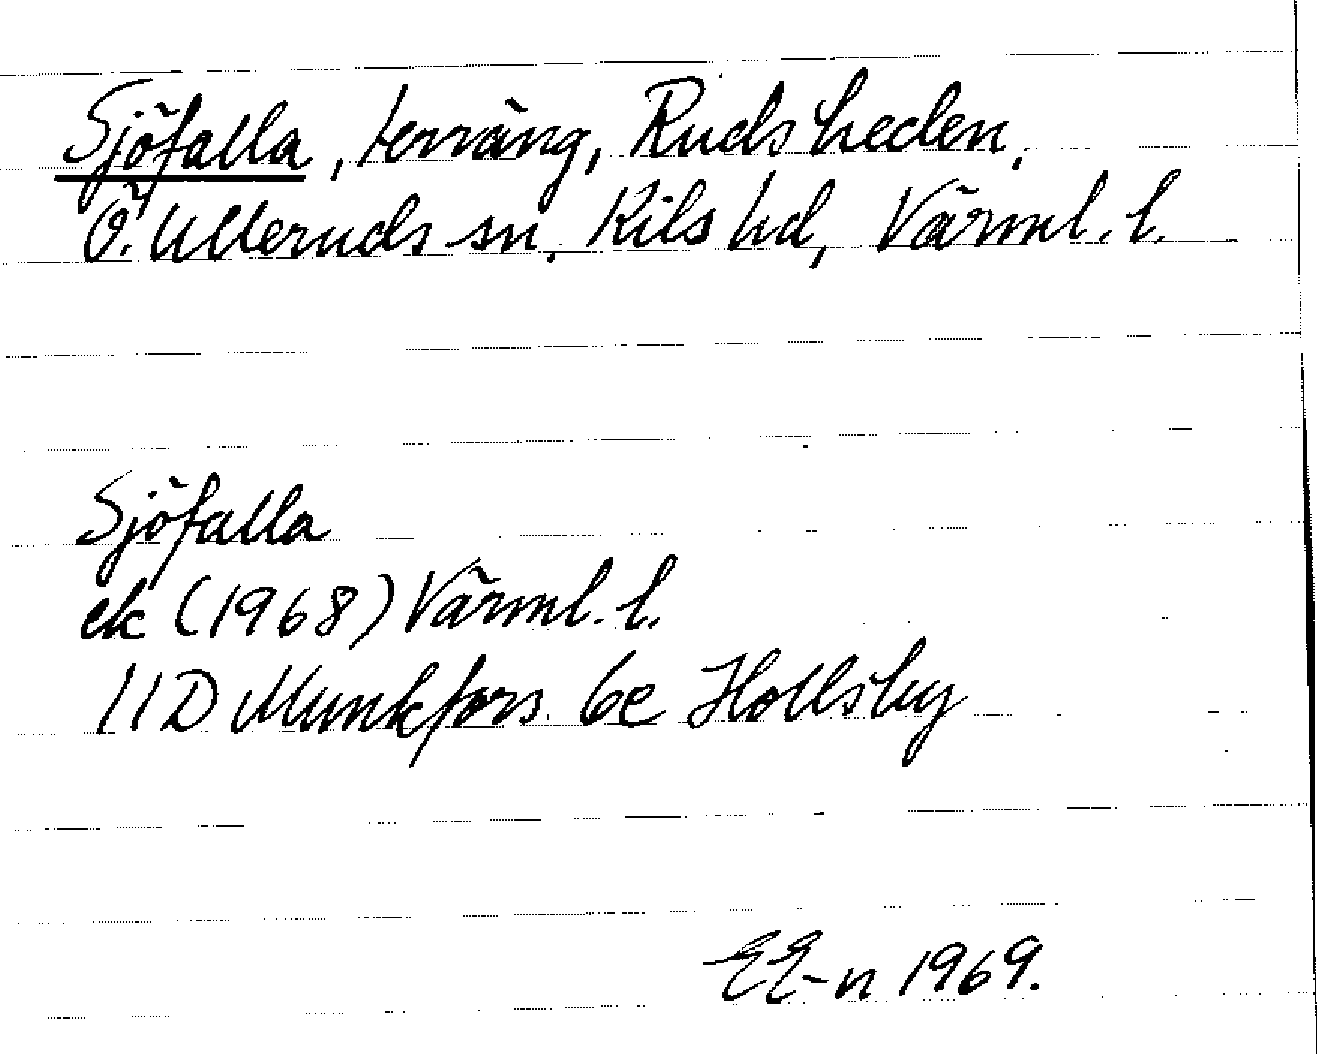 Sjöfalla, terräng, Rudsheden,
Ö. Ulleruds sn, Kils hd, Värml. l.
Sjöfalla
ek (1968) Värml. l.
11D Munkfors 6e Hollsby
EE-n 1969.